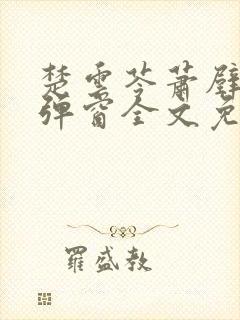 楚云苓萧壁
弹窗全文免
羅盛教